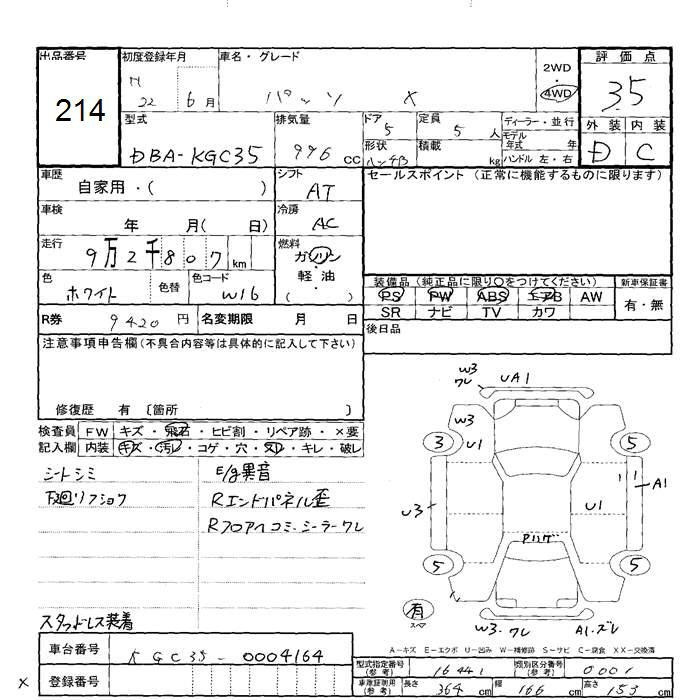 出品番号 初度登録年月 車名・グレード 評価点
214 H 22 6月 パッソ X 2WD 4WD 35
型式 排気量 ドア 5 定員 5人 ディーラー・並行 外装 内装
DBA-KGC35 996 cc 形状 ハッチB 積載 kg モデル年式 年 ハンドル 左・右 D C
車歴 自家用・( ) シフト AT セールスポイント (正常に機能するものに限ります)
車検 年 月( 日) 冷房 AC
走行 9万2千807 km 燃料 ガソリン 軽・油 ( )
色 ホワイト 色替 色コード W16
装備品 (純正品に限り○をつけてください) 新車保証書
PS PW ABS エアB AW 有・無
SR ナビ TV カワ
R券 9420 円 名変期限 月 日 後日品
注意事項申告欄 (不具合内容等は具体的に記入して下さい)
修復歴 有 〔箇所 〕
検査員 FW キズ・飛石・ヒビ割・リペア跡・×要
記入欄 内装 キズ・汚レ・コゲ・穴・スレ・キレ・破レ
シートシミ E/g異音
下廻リフショク Rエンドパネル歪
Rフロアヘコミ・シーラーワレ
スタッドレス装着
W3 ワレ UA1
W3 U1
3 5
U3 A1
U1
Pハゲ
5 5
有 スペア
W3・ワレ A1・ズレ
A-キズ E-エクボ U-凹み W-補修跡 S-サビ C-腐食 XX-交換済
車台番号 KGC35-0004164
登録番号
×
型式指定番号 (参考) 16441 類別区分番号 (参考) 0001
車庫証明用 (参考) 長さ 364 cm 幅 166 cm 高さ 153 cm